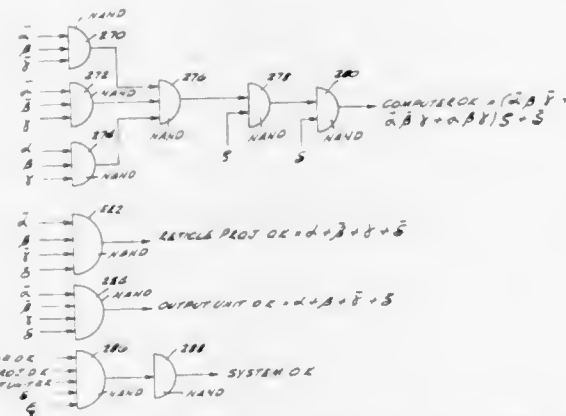 NAND
ᾱ
β
γ̄
270
ᾱ
β̄
γ
272
NAND
α
β
γ
NAND
276
NAND
278
NAND
ζ
280
NAND
ζ
COMPUTER OK = (ᾱ β γ̄ +
ᾱ β̄ γ + α β γ) ζ + ζ̄
ᾱ
β
γ̄
NAND
RETICLE PROJ OK = α + β̄ + γ + ζ̄
ᾱ
β̄
γ
NAND
OUTPUT UNIT OK = α + β + γ̄ + ζ̄
OK
OK
286
NAND
288
NAND
SYSTEM OK